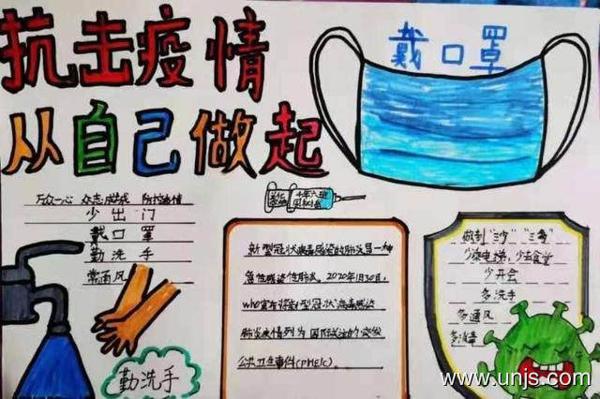 抗击疫情
从自己做起
戴口罩
万众一心 众志成城 防控疫情
少出门
戴口罩
勤洗手
常通风
勤洗手
新型冠状病毒感染的肺炎是一种
急性感染性肺炎。2020年1月30日,
WHO宣布将新型冠状病毒感染
肺炎疫情列为国际关注的突发
公共卫生事件(PHEIC)。
做到“三少”“三多”
少乘电梯,少去食堂
少开会
多洗手
多通风
www.unjs.com